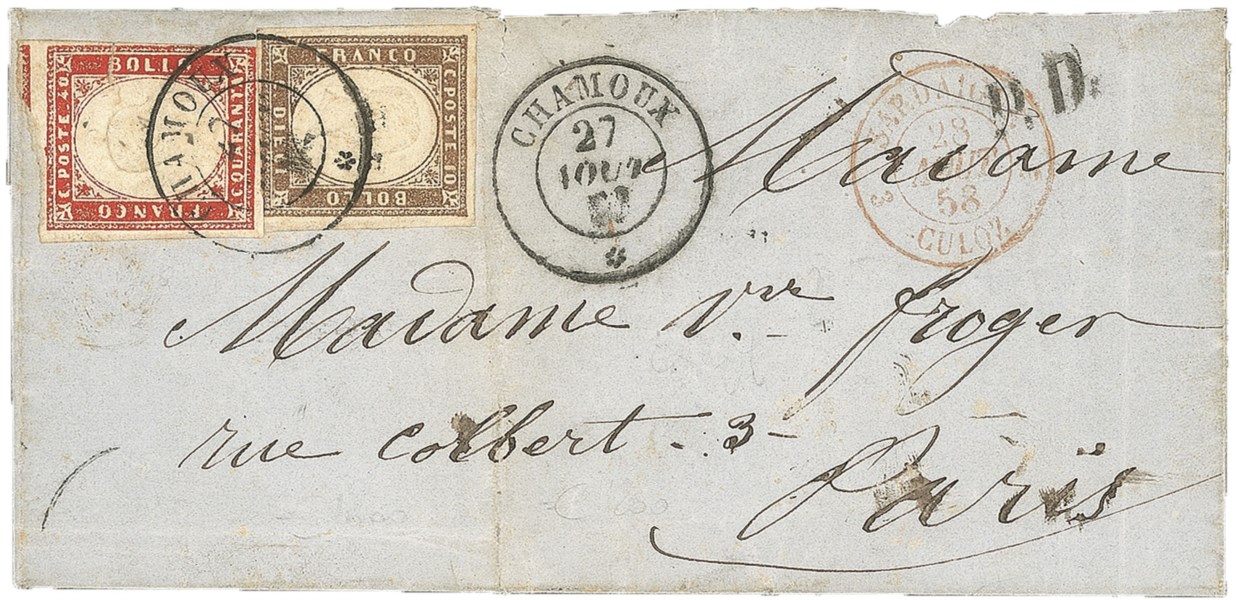 BOLLO
C. POSTE 40
C. QUARANTA
FRANCO
FRANCO
C. POSTE 10
C. DIECI
BOLLO
CHAMOUX
CHAMOUX
27
AOUT
P.D.
SARDAIGNE
28
AOUT
58
CULOZ
3
Madame
Madame Vve froger
rue Colbert - 3 -
Paris